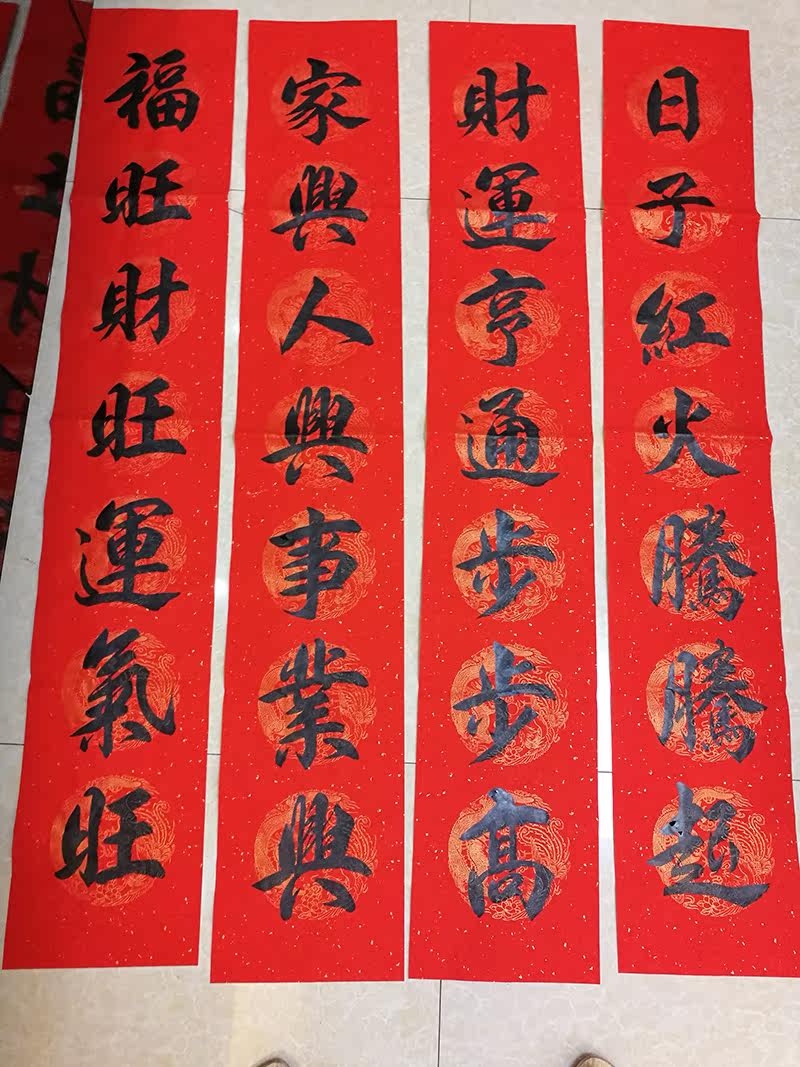 日子紅火騰騰起
財運亨通步步高
家興人興事業興
福旺財旺運氣旺